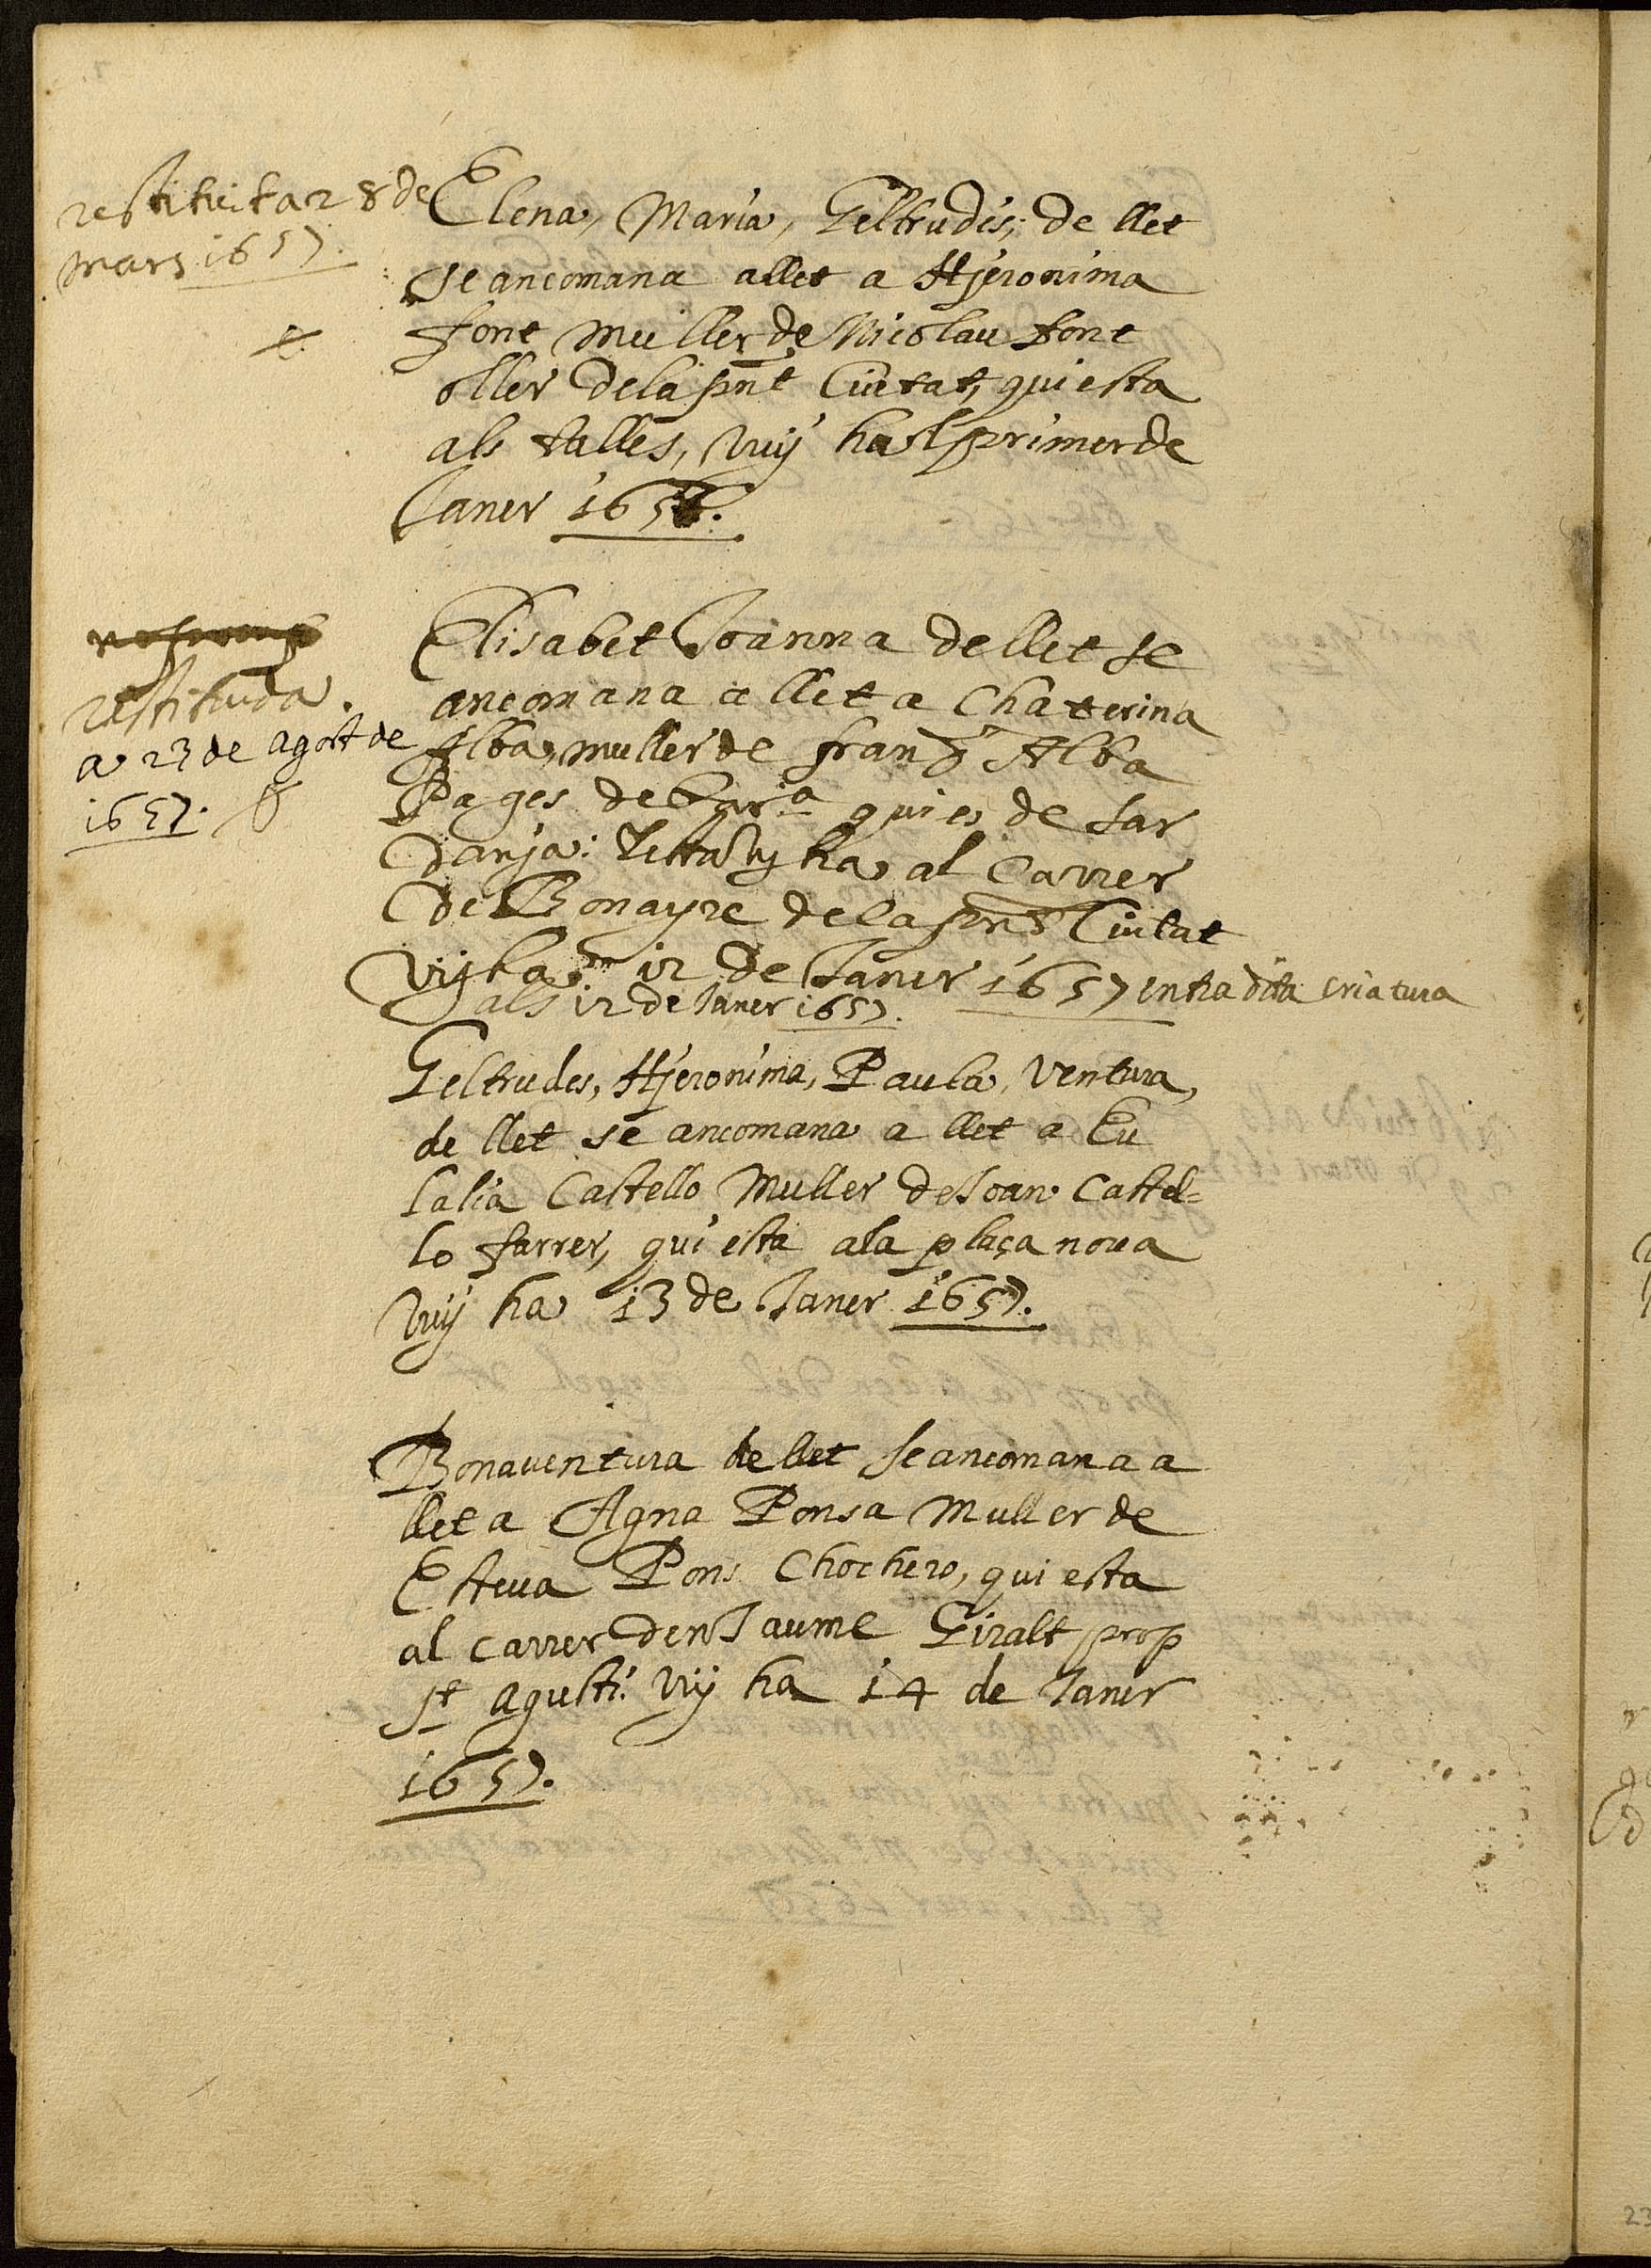 restituita 28 de
mars 1657.
Elena, Maria, Geltrudis, de llet
se ancomana allet a Hjeronima
font muller de Nicolau font
oller dela pnt Ciutat, qui esta
als talles, vuy ha al primer de
Janer 165
restituida.
a 23 de agost de
1657.
Elisabet Joanna de llet se
ancomana a llet a Chaterina
Alba, muller de Alba
Pages de qui es de Sar
danja: ha al Carrer
de Bonayre dela pnt Ciutat
Vuy ha 12 de Janer 1657 entra dita criatura
als 12 de Janer 1657.
Geltrudes, Hjeronima, Paula, Ventura,
de llet se ancomana a llet a Eu
lalia Castello Muller de Joan Castel=
lo farrer, qui esta ala plaça nova
Vuy ha 13 de Janer 1657.
Bonaventura de llet se ancomana a
llet a Agna Ponsa Muller de
Esteva Pons Chochero, qui esta
al carrer den Jaume Giralt prop
St Agusti. Vuy ha 14 de Janer
1657.